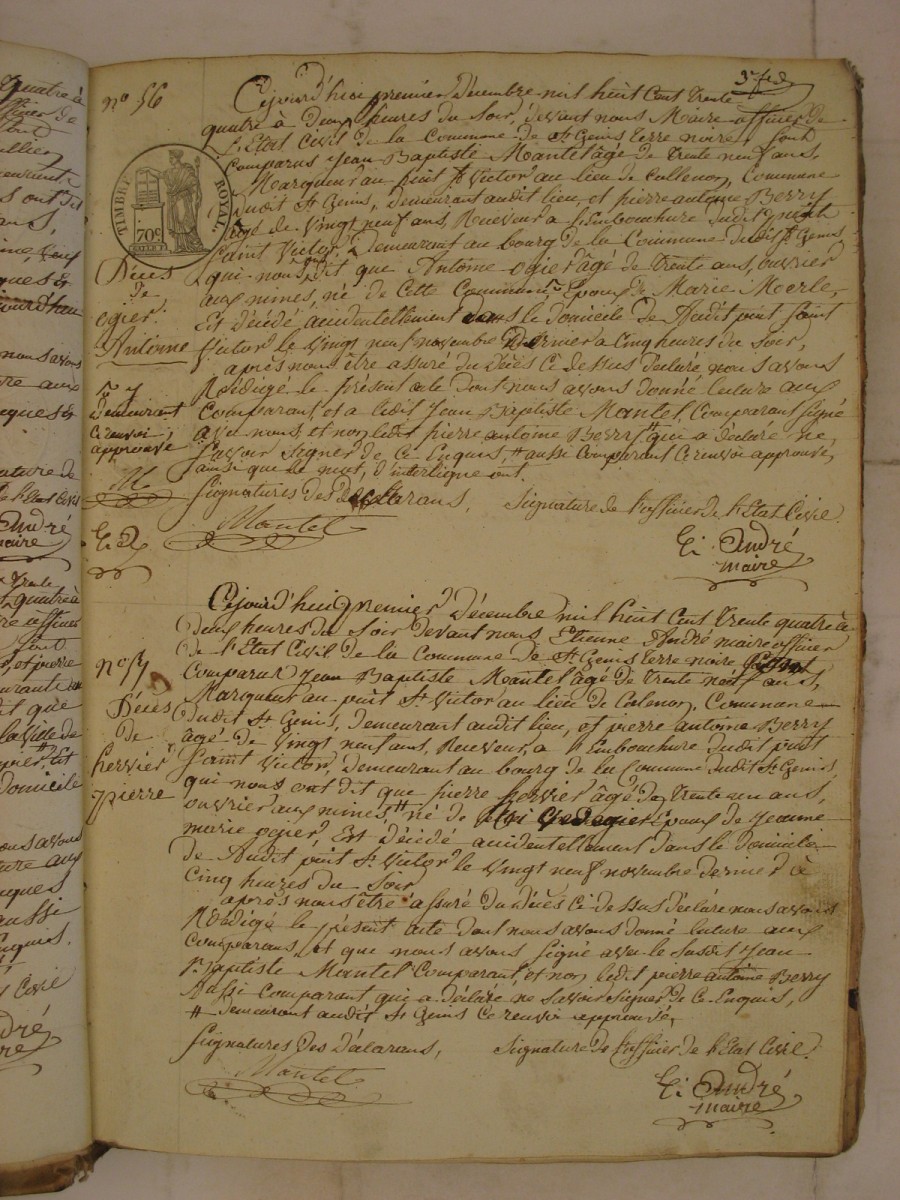 n° 56
TIMBRE ROYAL
70c
Décès
de
ogier
Antoine
demeurant
ce renvoi
approuvé
M
Et A
Cejourd'hui premier décembre mil huit cent trente
quatre à deux heures du soir, devant nous Maire officier de
l'Etat Civil de la Commune de St Genis terre noire, sont
comparus Jean Baptiste Mantel âgé de trente neuf ans,
Marqueur au puit St Victor au lieu de Collenon, Commune
dudit St Genis, demeurant audit lieu, et pierre antoine Berry
âgé de vingt neuf ans, Receveur a l'Embouchure dudit puit
Saint Victor, demeurant au bourg de la Commune dudit St Genis
qui nous ont dit que Antoine ogier âgé de trente ans, ouvrier
aux mines, né de cette Commune, Epoux de Marie Merle,
Est décédé accidentellement dans le domicile de audit puit Saint
Victor le vingt neuf novembre dernier a cinq heures du soir,
après nous être assuré du décès ci dessus déclaré, nous avons
Rédigé le présent acte dont nous avons donné lecture aux
comparant, et a ledit Jean Baptiste Mantel, comparant signé
avec nous, et non ledit pierre antoine Berry # qui a déclaré ne
savoir signer de ce Enquis, # aussi comparant ce renvoi approuvé,
ainsi que le mot, d'interligne ont.
Signatures des déclarans, Signature de l'officier de l'Etat Civil.
Mantel
Et André
maire
n° 57
Décès
de
hervier
pierre
Cejourd'hui premier décembre mil huit cent trente quatre à
deux heures du soir devant nous Etienne André maire officier
de l'Etat Civil de la commune de St Genis terre noire sont
comparus Jean Baptiste Mantel âgé de trente neuf ans,
Marqueur au puit St Victor au lieu de Colenon, Commune
dudit St Genis, demeurant audit lieu, et pierre antoine Berry
âgé de vingt neuf ans, Receveur, a l'Embouchure dudit puit
Saint Victor, demeurant au bourg de la Commune dudit St Genis
qui nous ont dit que pierre hervier âgé de trente un ans,
ouvrier aux mines, # né de Epoux de Jeanne
marie ogier, Est décédé accidentellement dans le domicile
de audit puit St Victor le vingt neuf novembre dernier à
cinq heures du soir
après nous être assuré du décès ci dessus déclaré nous avons
Rédigé le présent acte dont nous avons donné lecture aux
comparans, et que nous avons signé avec le susdit Jean
Baptiste Mantel comparant, et non ledit pierre antoine Berry
Aussi comparant qui a déclaré ne savoir signer de ce Enquis,
# demeurant audit St Genis ce renvoi approuvé,
Signatures des déclarans, Signature de l'officier de l'Etat Civil.
Mantel
Et André
maire